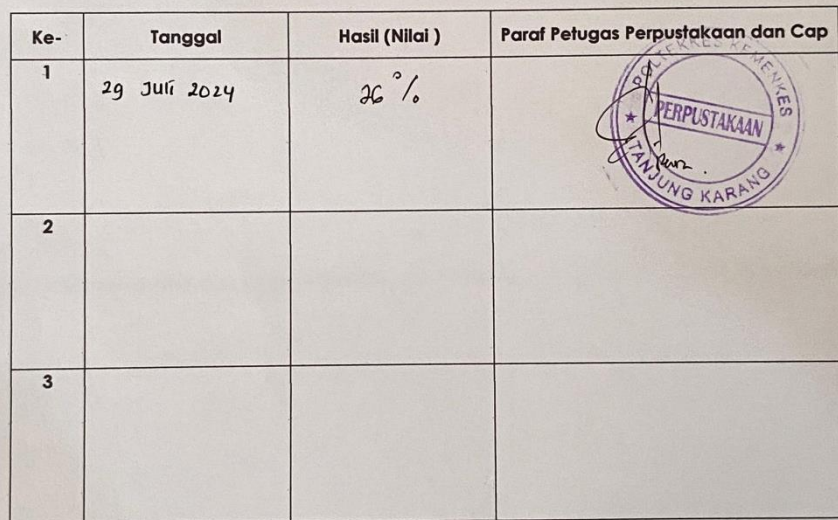 Ke- Tanggal Hasil (Nilai ) Paraf Petugas Perpustakaan dan Cap
1 29 Juli 2024 26 %
POLTEKKES KEMENKES
PERPUSTAKAAN
TANJUNG KARANG
2
3